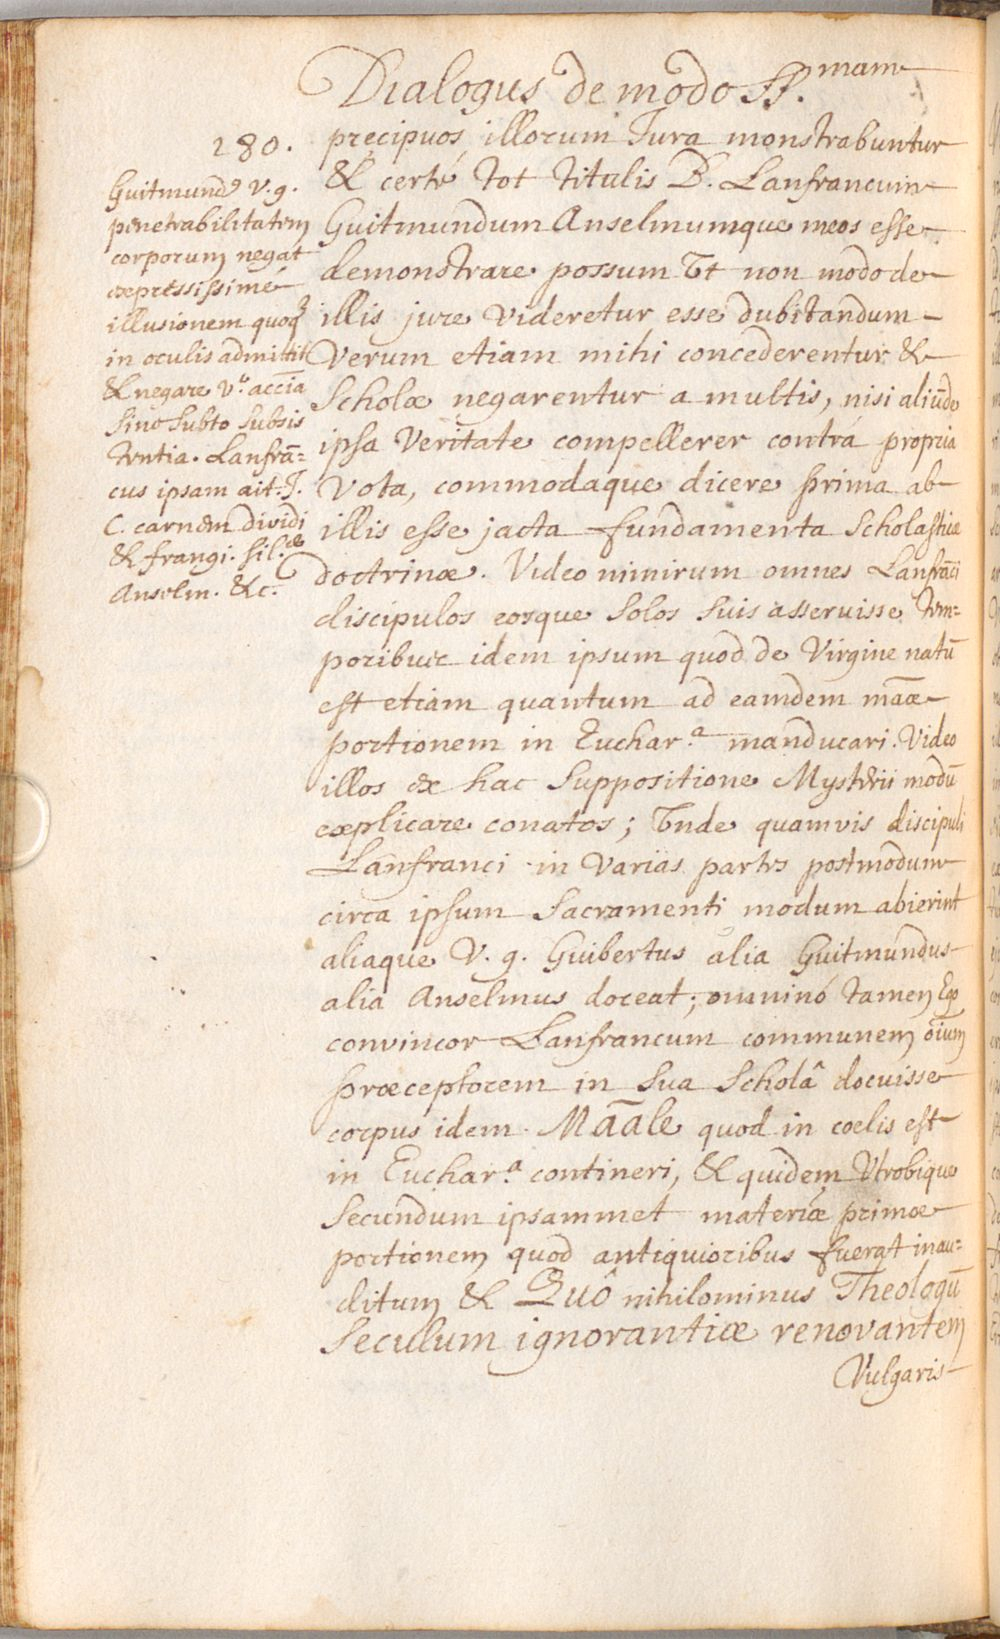 Dialogus de modo SS.mam
280.
Guitmund9 v.g.
penetrabilitatem
corporum negat
expressissimé
illusionem quoq3
in oculis admittit
& negare v.o acc̄ia
sine subto subsis
tentia. Lanfrā=
cus ipsam ait. J.
C. carnem dividi
& frangi. sil.æ
Anselm. &c.
precipuos, illorum Jura monstrabuntur
& certé tot titulis B. Lanfrancum
Guitmundum Anselmumque meos esse
demonstrare possum Ut non modo de
illis jure Videretur esse dubitandum
Verum etiam mihi concederentur &
Scholæ negarentur a multis, nisi aliūde
ipsa Veritate compellerer contrá propria
Vota, commodaque dicere prima ab
illis esse jacta fundamenta Scholasticæ
doctrinæ. Video nimirum omnes Lanfrāci
discipulos eosque solos suis asseruisse tem=
poribus idem ipsum quod de Virgine natū
est etiam quantum ad eamdem māæ
portionem in Euchar.a manducari. Video
illos ex hac suppositione Mysterii modū
explicare conatos; Unde quamvis discipuli
Lanfranci in Varias partes postmodum
circa ipsum Sacramenti modum abierint
aliaque V. g. Guibertus alia Guitmundus
alia Anselmus doceat; omninó tamen Ego
convincor Lanfrancum communem oīum
præceptorem in sua Scholâ docuisse
corpus idem Māāle quod in coelis est
in Euchar.a contineri, & quidem Utrobique
secundum ipsammet materiæ primæ
portionem quod antiquioribus fuerat inau=
ditum & Quô nihilominus Theologū
seculum ignorantiæ renovantem
Vulgaris